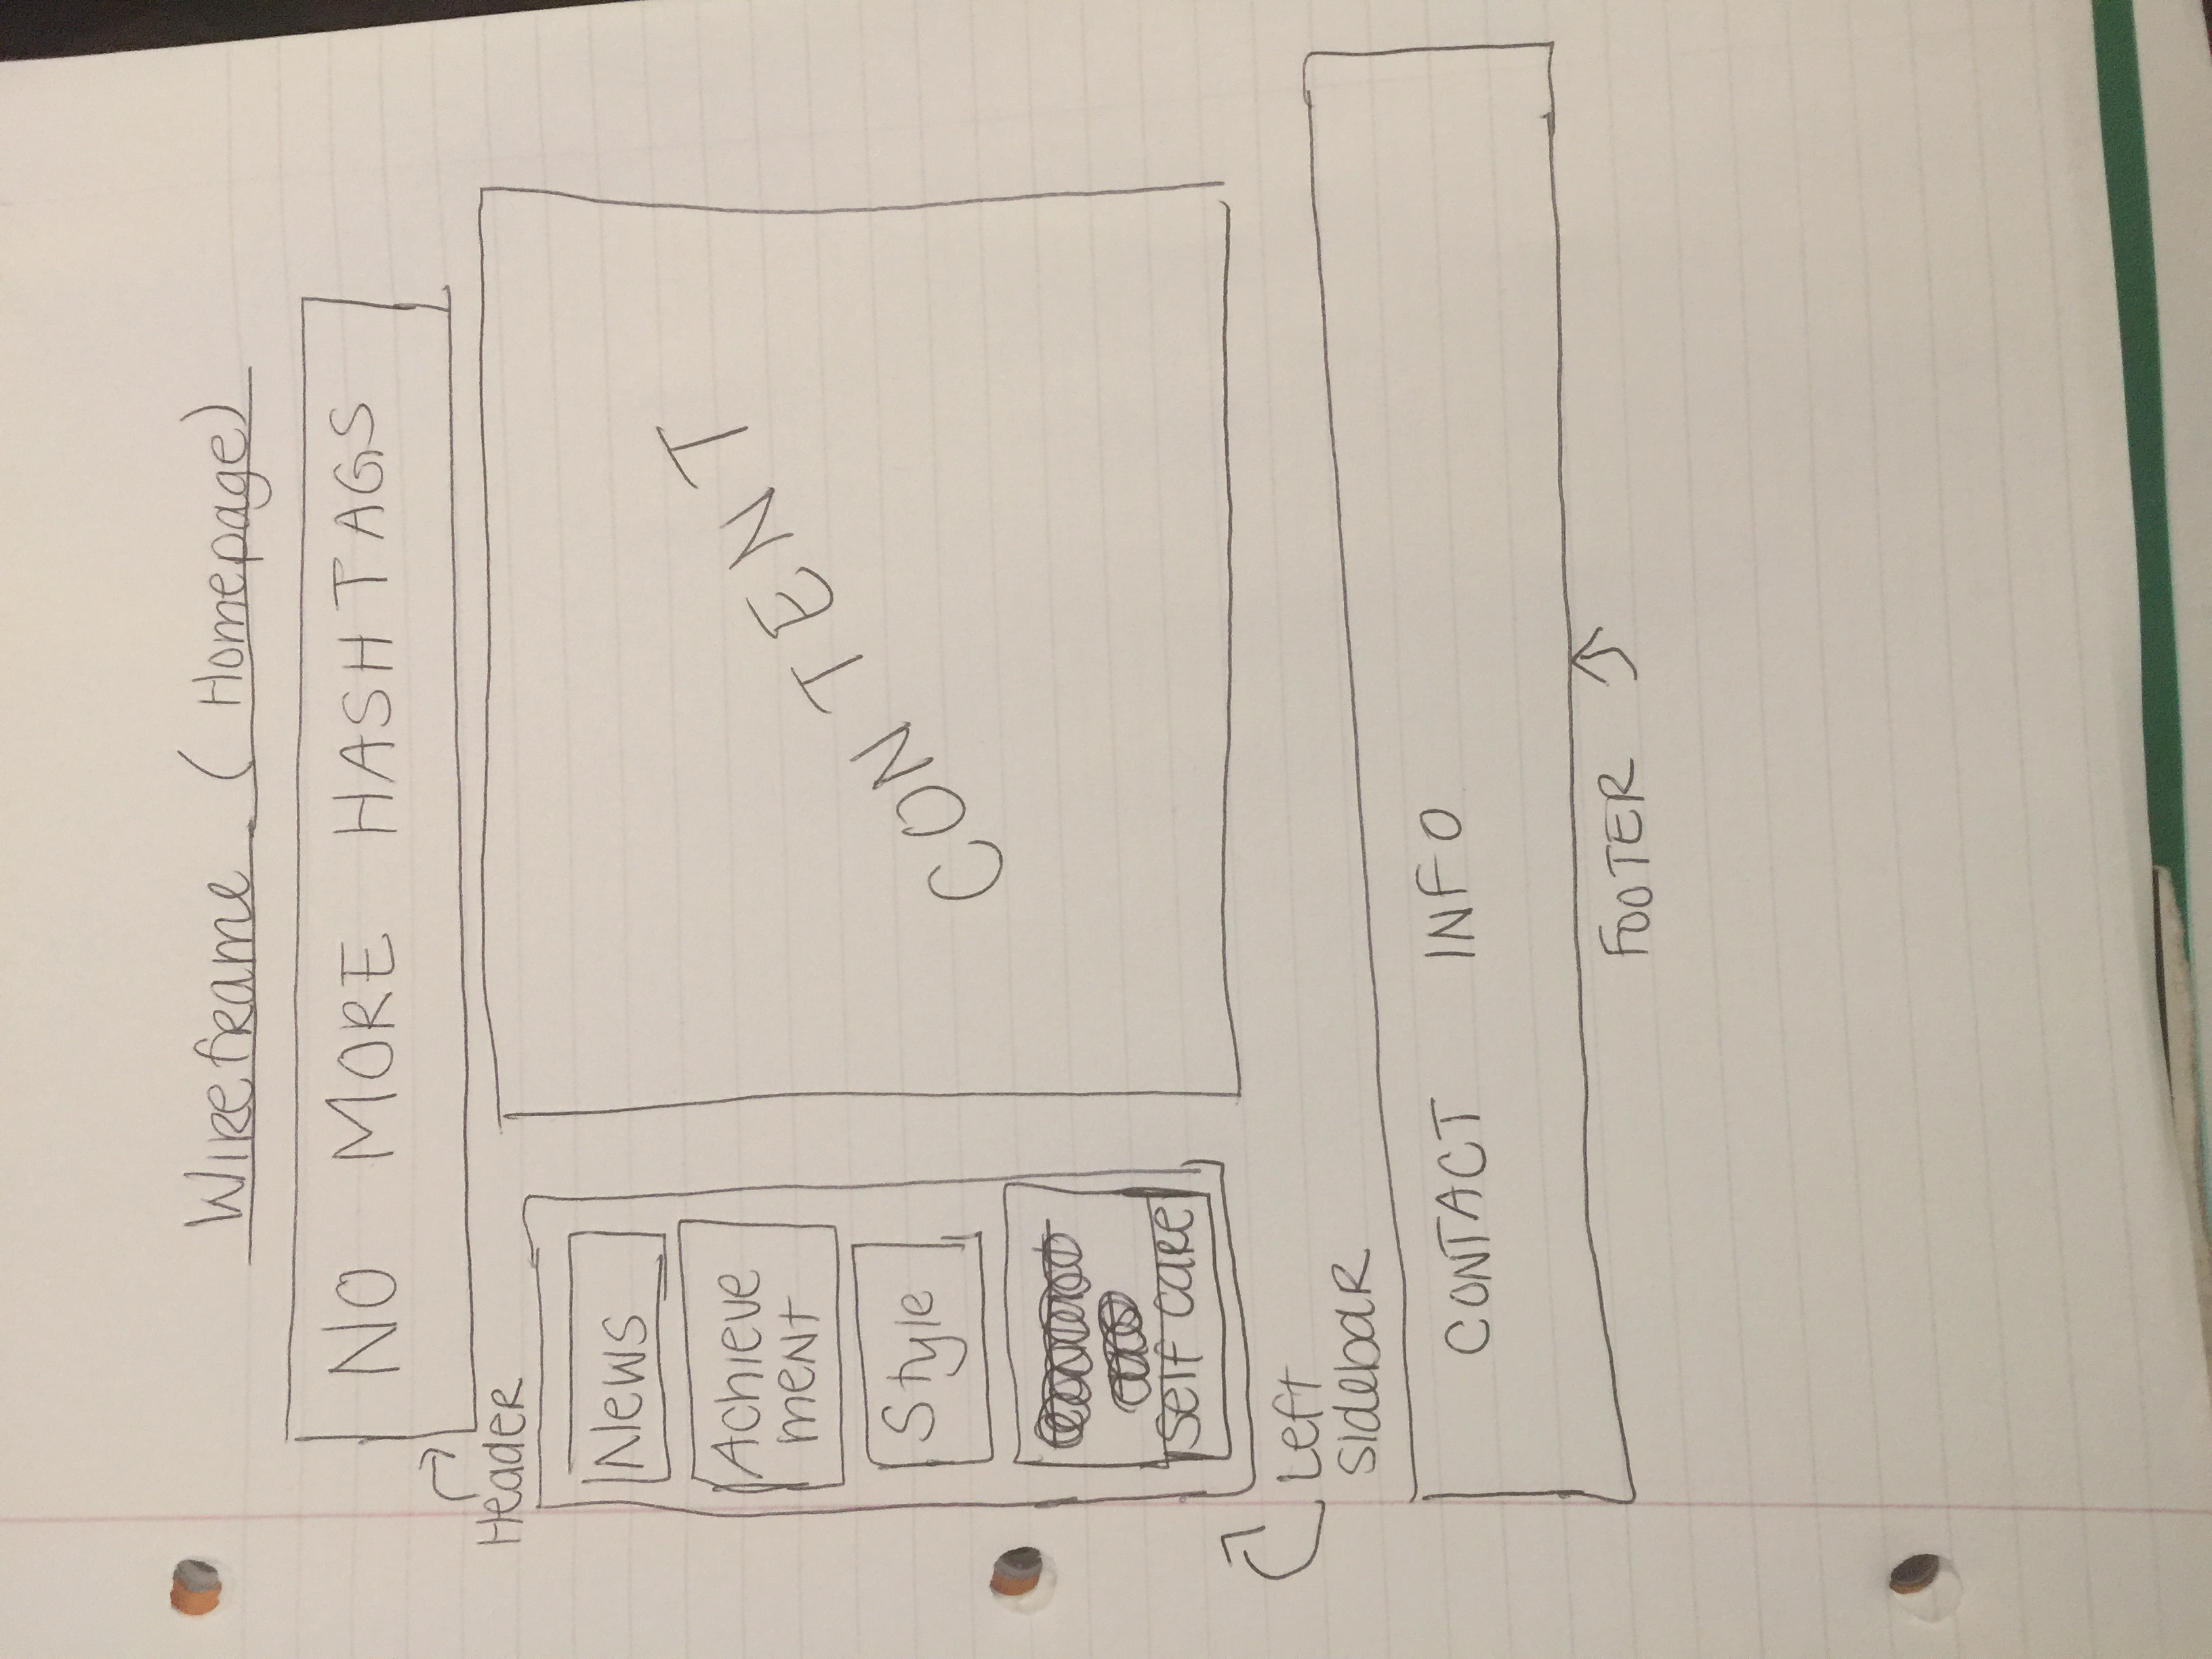 Wireframe (Homepage)
NO MORE HASHTAGS
Header
News
Achieve
ment
Style
Self care
Left
sidebar
CONTENT
CONTACT INFO
FOOTER